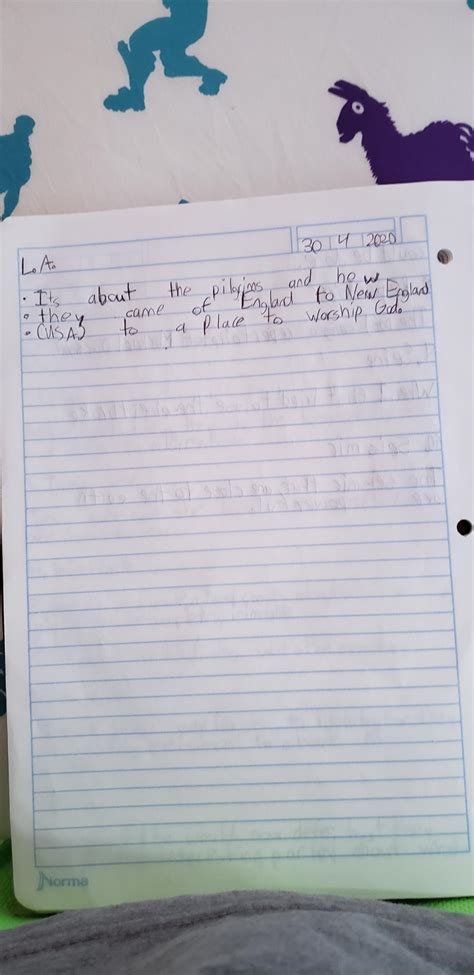 30 4 2020
L.A.
• Its about the pilgrims and how
• they came of England to New England
• (USA) to a Place to worship God.
Norma